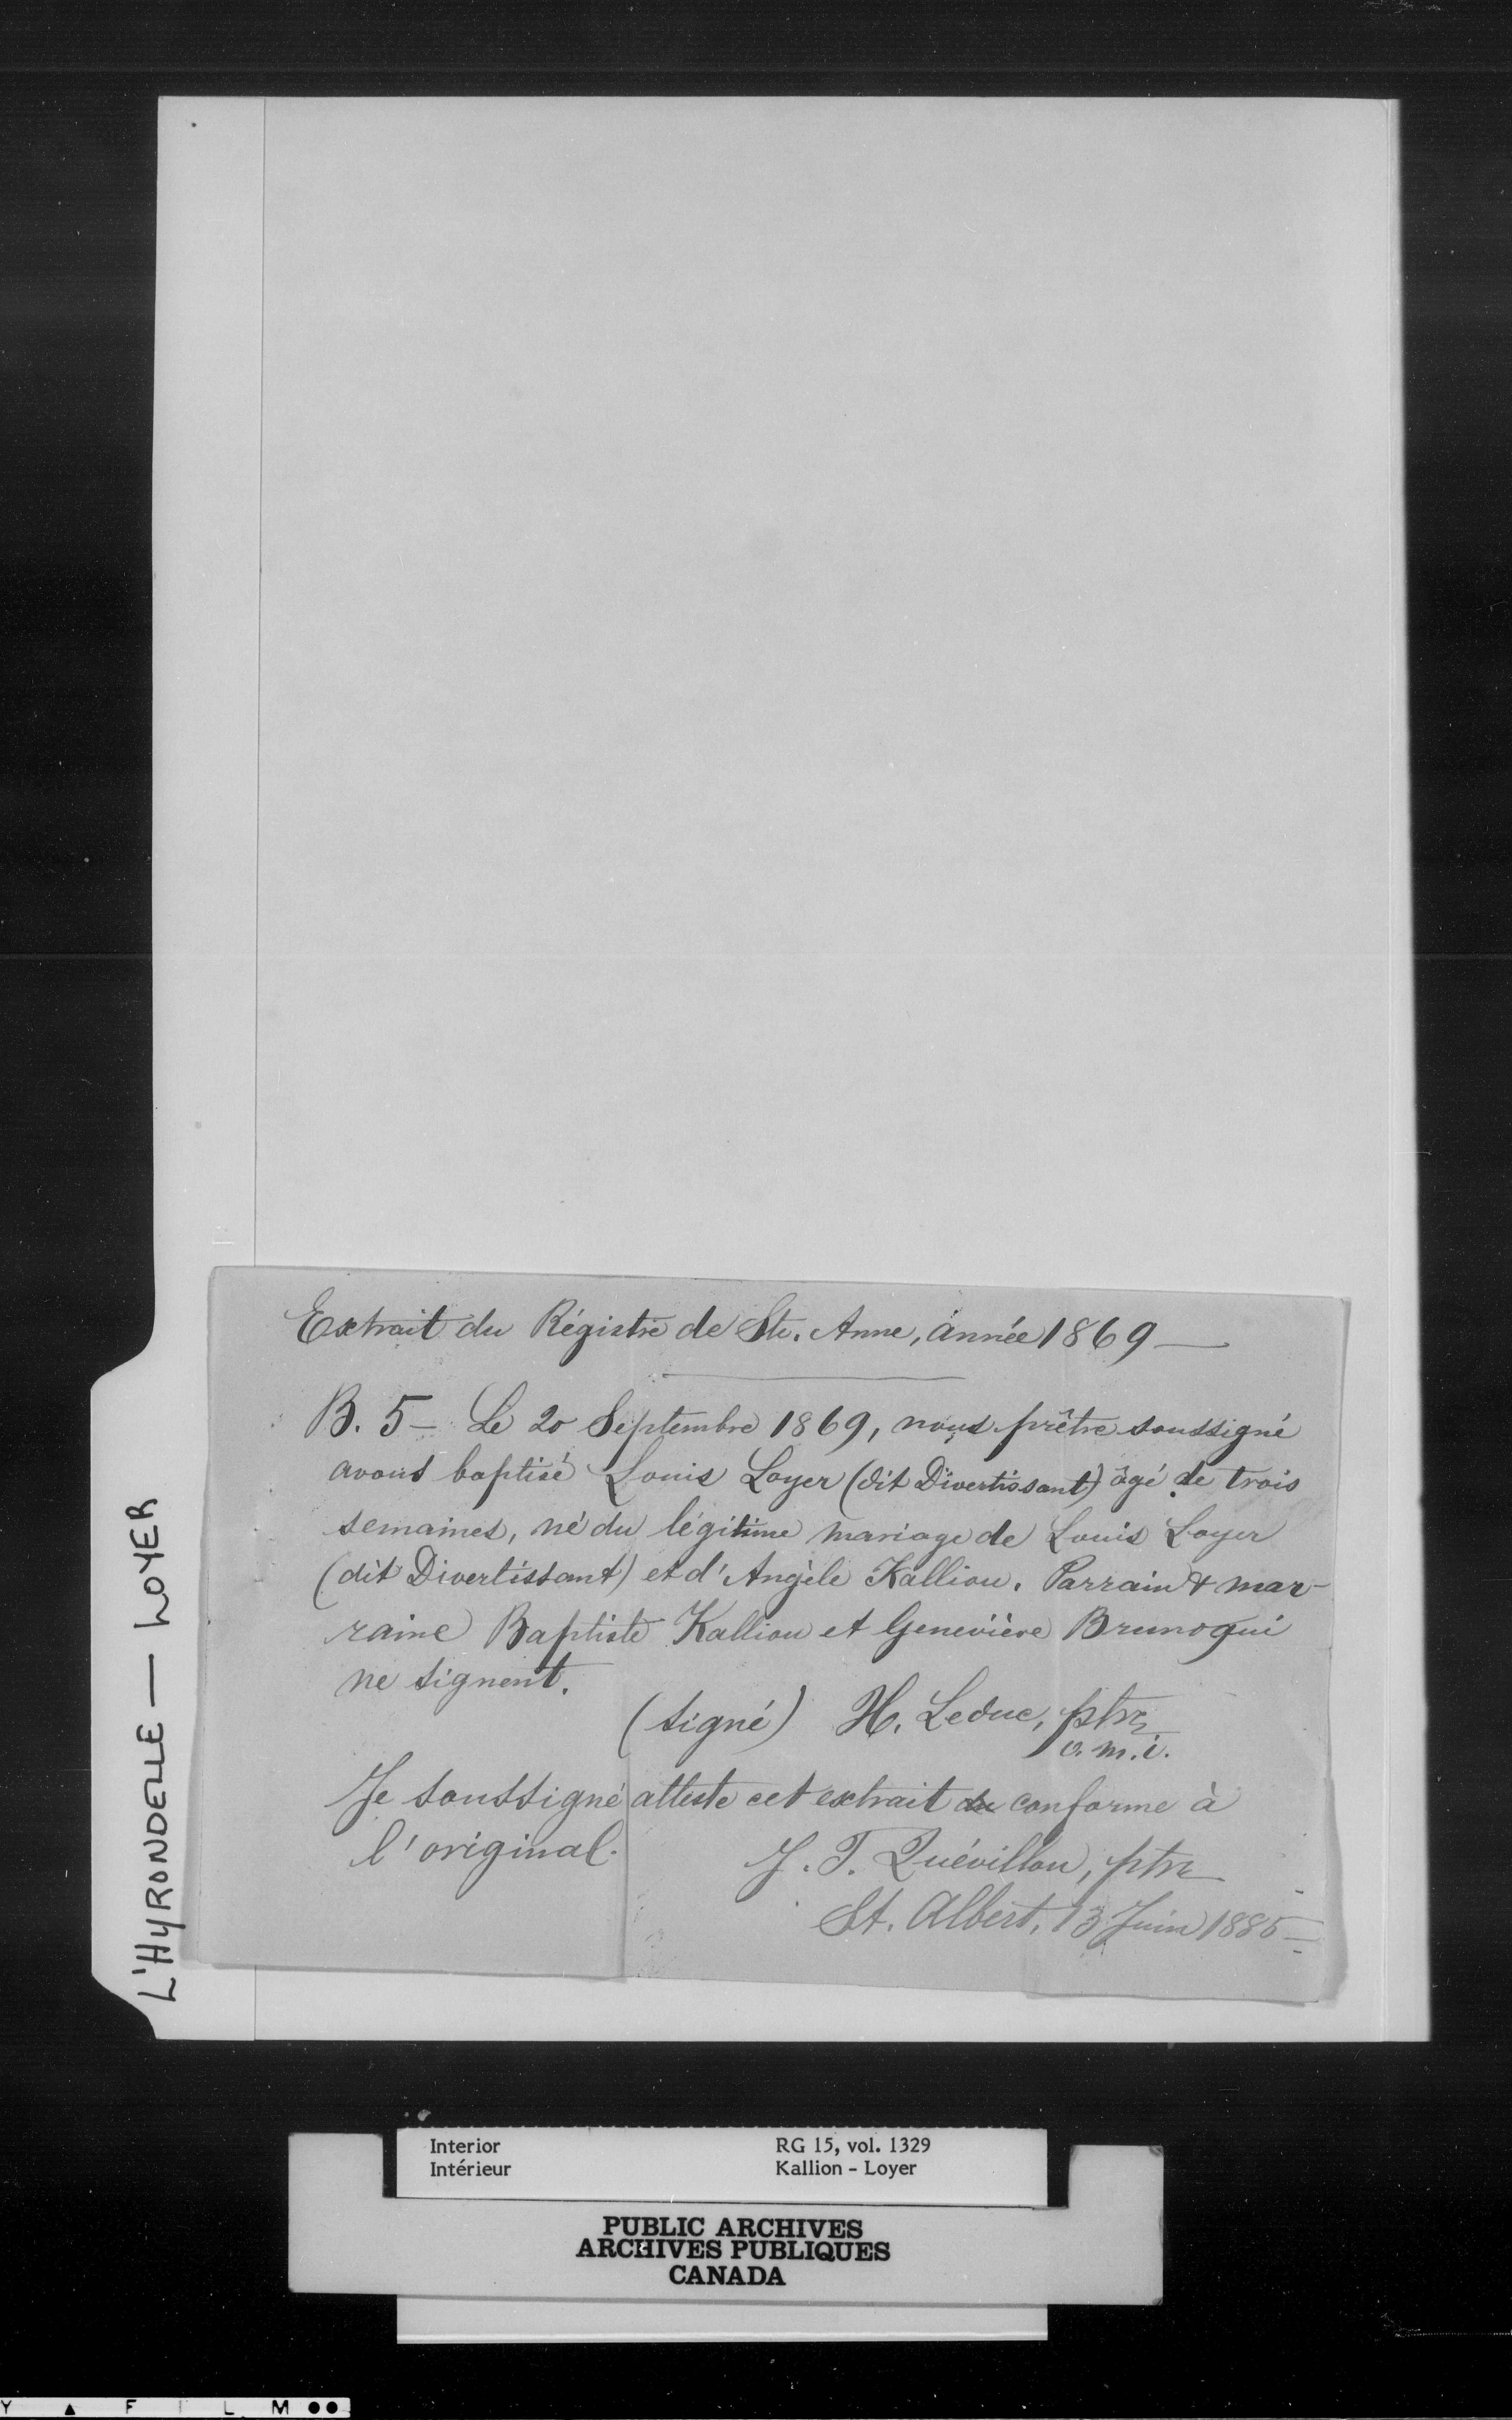 Extrait du Régistre de Ste. Anne, année 1869 —
B. 5 — Le 20 Septembre 1869, nous prêtre soussigné
avons baptisé Louis Loyer (dit Divertissant) âgé de trois
semaines, né du légitime mariage de Louis Loyer
(dit Divertissant) et d'Angèle Kalliou. Parrain & mar-
raine Baptiste Kalliou et Geneviève Bruno qui
ne signent.
(signé) H. Leduc, ptre
o.m.i.
Je soussigné atteste cet extrait conforme à
l'original.
J. T. Quévillon, ptre
St. Albert, 13 Juin 1885 —
L'HYRONDELLE — LOYER
Interior RG 15, vol. 1329
Intérieur Kallion - Loyer
PUBLIC ARCHIVES
ARCHIVES PUBLIQUES
CANADA
Y ▲ F I L M ●●